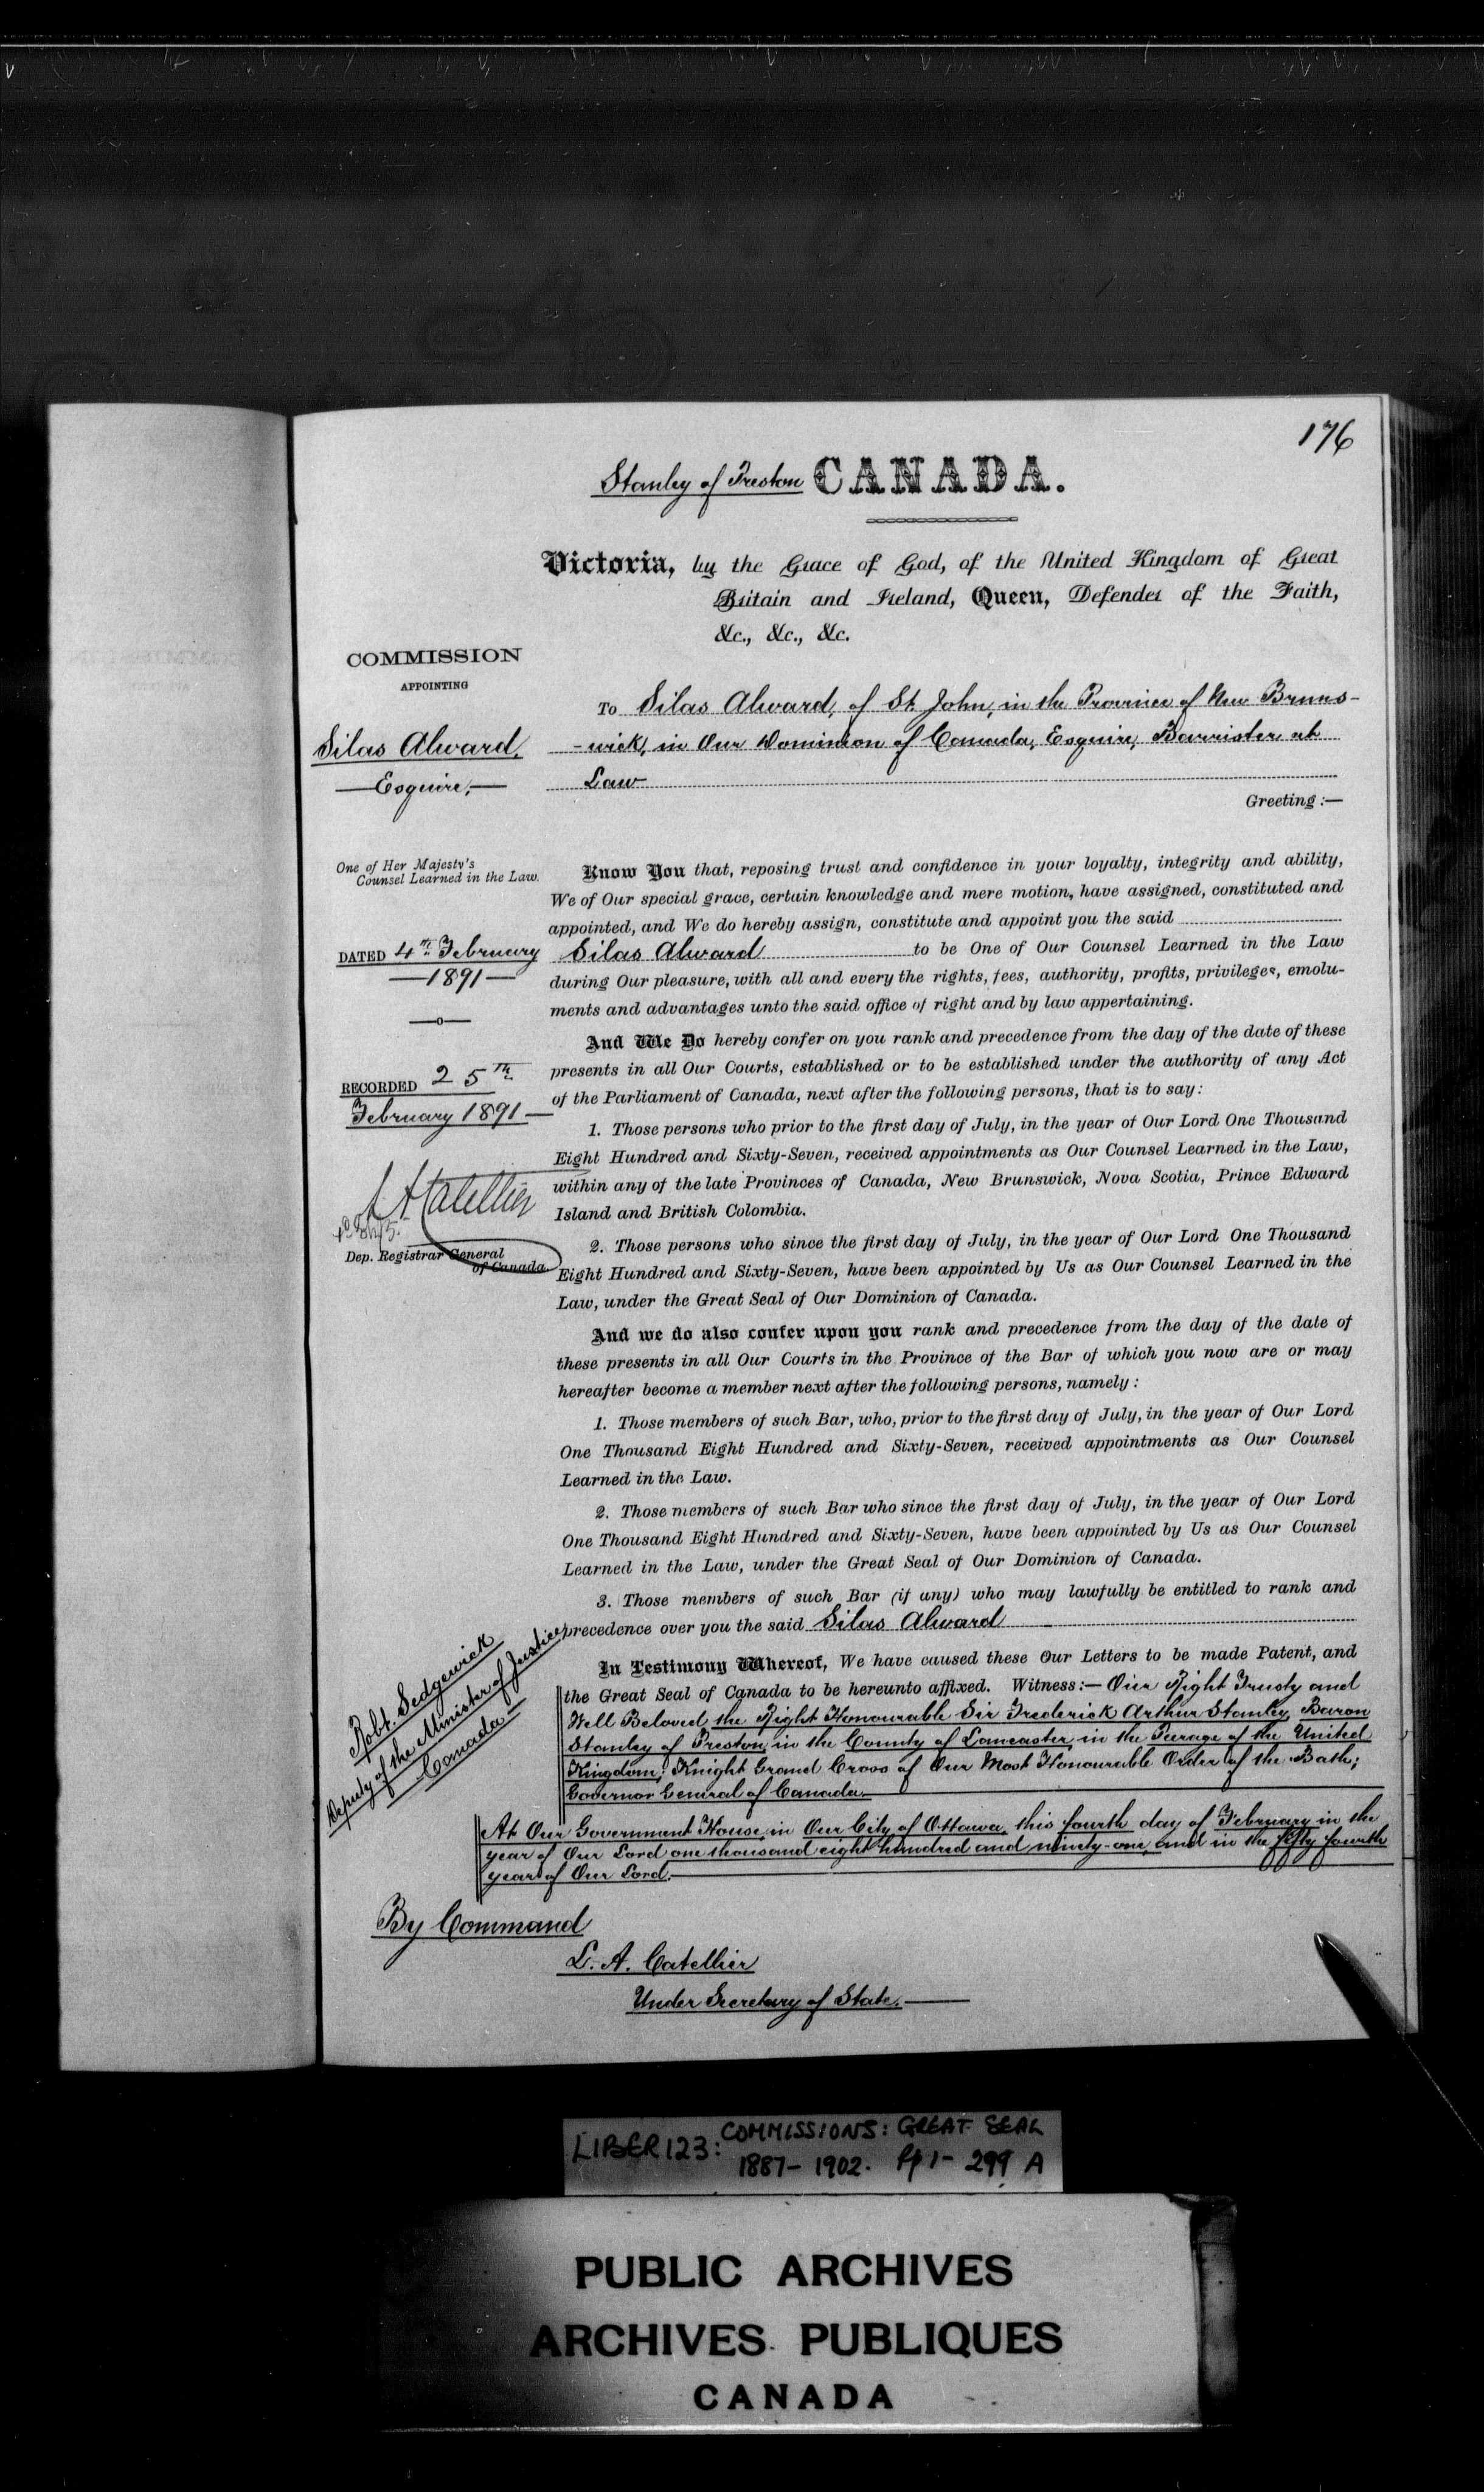 176
Stanley of Preston CANADA.
Victoria, by the Grace of God, of the United Kingdom of Great
Britain and Ireland, Queen, Defender of the Faith,
&c., &c., &c.
COMMISSION
APPOINTING
Silas Alward,
Esquire,
One of Her Majesty's
Counsel Learned in the Law.
DATED 4th February
1891
RECORDED 25th
February 1891
L A Catellier
Dep. Registrar General
of Canada.
To Silas Alward, of St. John, in the Province of New Bruns-
-wick, in Our Dominion of Canada, Esquire, Barrister at
Law
Greeting :—
Know You that, reposing trust and confidence in your loyalty, integrity and ability,
We of Our special grace, certain knowledge and mere motion, have assigned, constituted and
appointed, and We do hereby assign, constitute and appoint you the said
Silas Alward to be One of Our Counsel Learned in the Law
during Our pleasure, with all and every the rights, fees, authority, profits, privileges, emolu-
ments and advantages unto the said office of right and by law appertaining.
And We Do hereby confer on you rank and precedence from the day of the date of these
presents in all Our Courts, established or to be established under the authority of any Act
of the Parliament of Canada, next after the following persons, that is to say:
1. Those persons who prior to the first day of July, in the year of Our Lord One Thousand
Eight Hundred and Sixty-Seven, received appointments as Our Counsel Learned in the Law,
within any of the late Provinces of Canada, New Brunswick, Nova Scotia, Prince Edward
Island and British Colombia.
2. Those persons who since the first day of July, in the year of Our Lord One Thousand
Eight Hundred and Sixty-Seven, have been appointed by Us as Our Counsel Learned in the
Law, under the Great Seal of Our Dominion of Canada.
And we do also confer upon you rank and precedence from the day of the date of
these presents in all Our Courts in the Province of the Bar of which you now are or may
hereafter become a member next after the following persons, namely :
1. Those members of such Bar, who, prior to the first day of July, in the year of Our Lord
One Thousand Eight Hundred and Sixty-Seven, received appointments as Our Counsel
Learned in the Law.
2. Those members of such Bar who since the first day of July, in the year of Our Lord
One Thousand Eight Hundred and Sixty-Seven, have been appointed by Us as Our Counsel
Learned in the Law, under the Great Seal of Our Dominion of Canada.
3. Those members of such Bar (if any) who may lawfully be entitled to rank and
precedence over you the said Silas Alward
In Testimony Whereof, We have caused these Our Letters to be made Patent, and
the Great Seal of Canada to be hereunto affixed. Witness:— Our Right Trusty and
Well Beloved the Right Honourable Sir Frederick Arthur Stanley, Baron
Stanley of Preston, in the County of Lancaster, in the Peerage of the United
Kingdom; Knight Grand Cross of Our Most Honourable Order of the Bath;
Governor General of Canada.
At Our Government House, in Our City of Ottawa, this fourth day of February in the
year of Our Lord one thousand eight hundred and ninety-one, and in the fifty fourth
year of Our Lord.
Robt. Sedgewick
Deputy of the Minister of Justice
Canada
By Command
L. A. Catellier
Under Secretary of State.
LIBER 123: COMMISSIONS: GREAT SEAL
1887- 1902. Pp 1- 299 A
PUBLIC ARCHIVES
ARCHIVES PUBLIQUES
CANADA